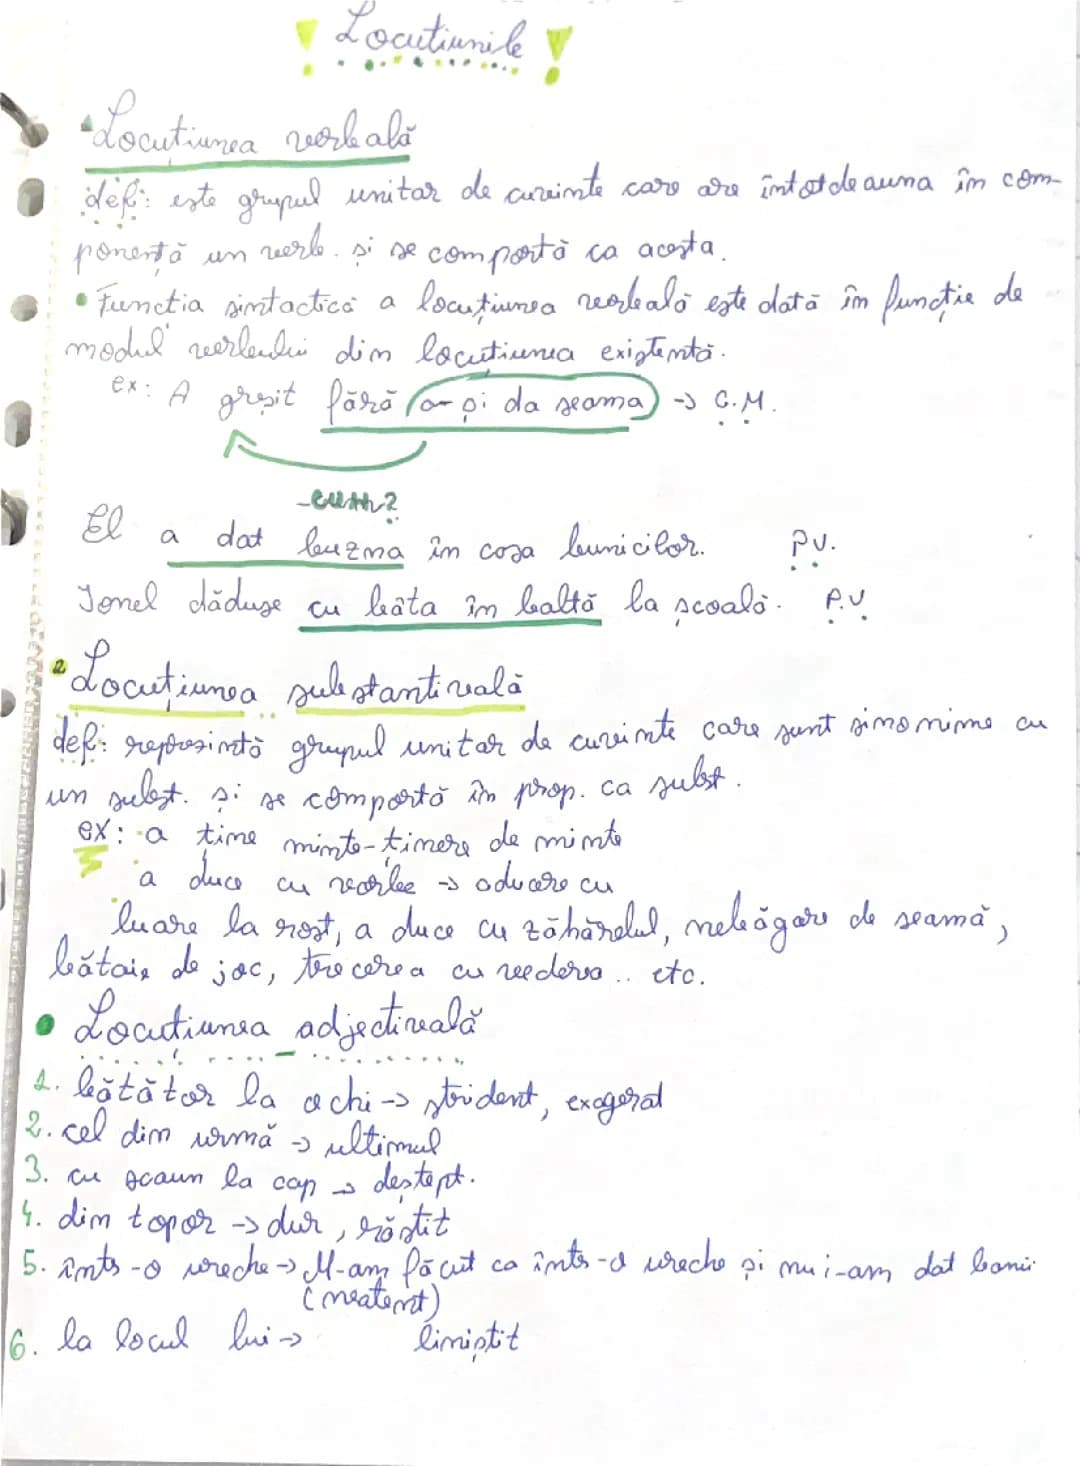 ! Locuțiunile !
1 Locuțiunea verbală
def: este grupul unitar de cuvinte care are întotdeauna în com-
ponență un verb. și se comportă ca acesta.
• Funcția sintactică a locuțiunea verbală este dată în funcție de
modul verbului din locuțiunea existentă.
ex: A greșit fără a-și da seama → C.M.
- cum?
El a dat buzna în casa bunicilor. P.V.
Ionel dăduse cu bâta în baltă la școală. P.V.
2 Locuțiunea substantivală
def: reprezintă grupul unitar de cuvinte care sunt sinonime cu
un subst. și se comportă în prop. ca subst.
ex: a ține minte - ținere de minte
a duce cu vorba → aducere cu
luare la rost, a duce cu zăhărelul, nebăgare de seamă,
bătaie de joc, trecerea cu vederea .. etc.
• Locuțiunea adjectivală
1. bătător la ochi → strident, exagerat
2. cel din urmă → ultimul
3. cu scaun la cap → deștept.
4. din topor → dur, răstit
5. într-o ureche → M-am făcut ca într-o ureche și nu i-am dat banii
(neatent)
6. la locul lui → liniștit